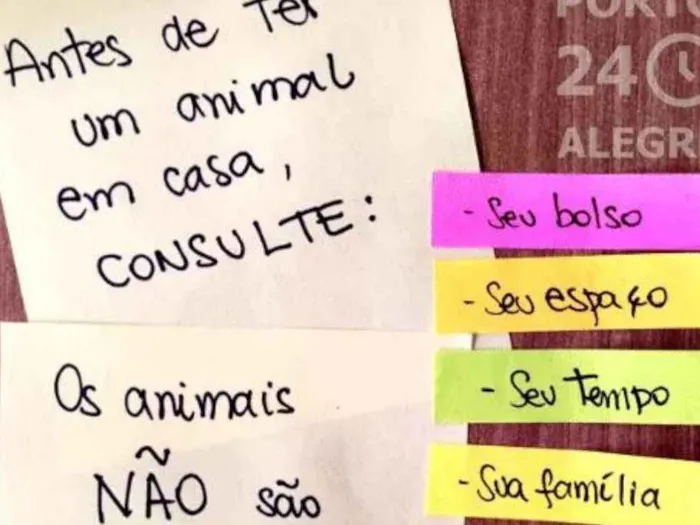 Antes de ter
um animal
em casa,
CONSULTE:
- Seu bolso
- Seu espaço
- Seu tempo
- Sua família
Os animais
NÃO são
PORTO
24
ALEGRE